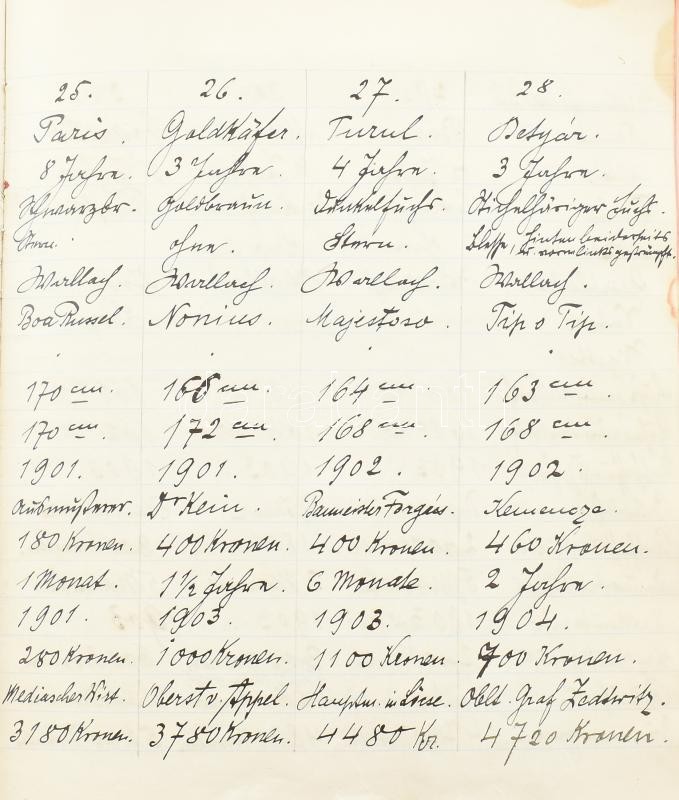 25. 26. 27. 28.
Paris. Goldkäfer. Turul. Betyár.
8 Jahre. 3 Jahre. 4 Jahre. 3 Jahre.
Schwarzbr. Goldbraun. Dunkelfuchs. Stichelhäriger Fuchs.
Stern. ohne. Stern. Blesse, hinten beiderseits
u. vorn links gestrümpft.
Wallach. Wallach. Wallach. Wallach.
Boa Russel. Nonius. Majestoso. Tip o Tip.
170 cm. 166 cm. 164 cm. 163 cm.
170 cm. 172 cm. 168 cm. 168 cm.
1901. 1901. 1902. 1902.
Ausmusterer. Dr Kein. Baumeister Forgács. Kemencze.
180 Kronen. 400 Kronen. 400 Kronen. 460 Kronen.
1 Monat. 1 1/2 Jahre. 6 Monate. 2 Jahre.
1901. 1903. 1903. 1904.
280 Kronen. 1000 Kronen. 1100 Kronen. 700 Kronen.
Mediascher Wirt. Oberst v. Appel. Hauptm. in Löcse. Oblt. Graf Zedtwitz.
3180 Kronen. 3780 Kronen. 4480 Kr. 4720 Kronen.